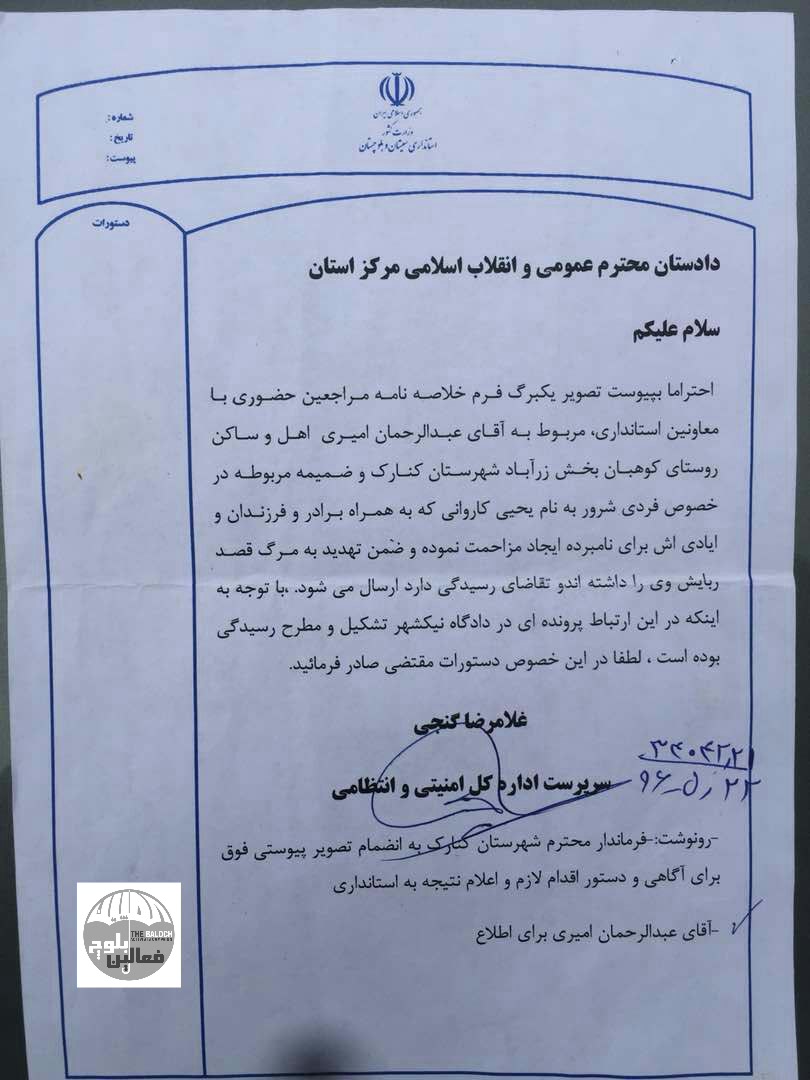 جمهوری اسلامی ایران
وزارت کشور
استانداری سیستان و بلوچستان
شماره:
تاریخ:
پیوست:
دستورات
دادستان محترم عمومی و انقلاب اسلامی مرکز استان
سلام علیکم
احتراما بپیوست تصویر یکبرگ فرم خلاصه نامه مراجعین حضوری با
معاونین استانداری، مربوط به آقای عبدالرحمان امیری اهل و ساکن
روستای کوهبان بخش زرآباد شهرستان کنارک و ضمیمه مربوطه در
خصوص فردی شرور به نام یحیی کاروانی که به همراه برادر و فرزندان و
ایادی اش برای نامبرده ایجاد مزاحمت نموده و ضمن تهدید به مرگ قصد
ربایش وی را داشته اندو تقاضای رسیدگی دارد ارسال می شود. ،با توجه به
اینکه در این ارتباط پرونده ای در دادگاه نیکشهر تشکیل و مطرح رسیدگی
بوده است ، لطفا در این خصوص دستورات مقتضی صادر فرمائید.
غلامرضا گنجی
سرپرست اداره کل امنیتی و انتظامی
-رونوشت:-فرماندار محترم شهرستان کنارک به انضمام تصویر پیوستی فوق
برای آگاهی و دستور اقدام لازم و اعلام نتیجه به استانداری
-آقای عبدالرحمان امیری برای اطلاع
THE BALOCH
فعالین بلوچ